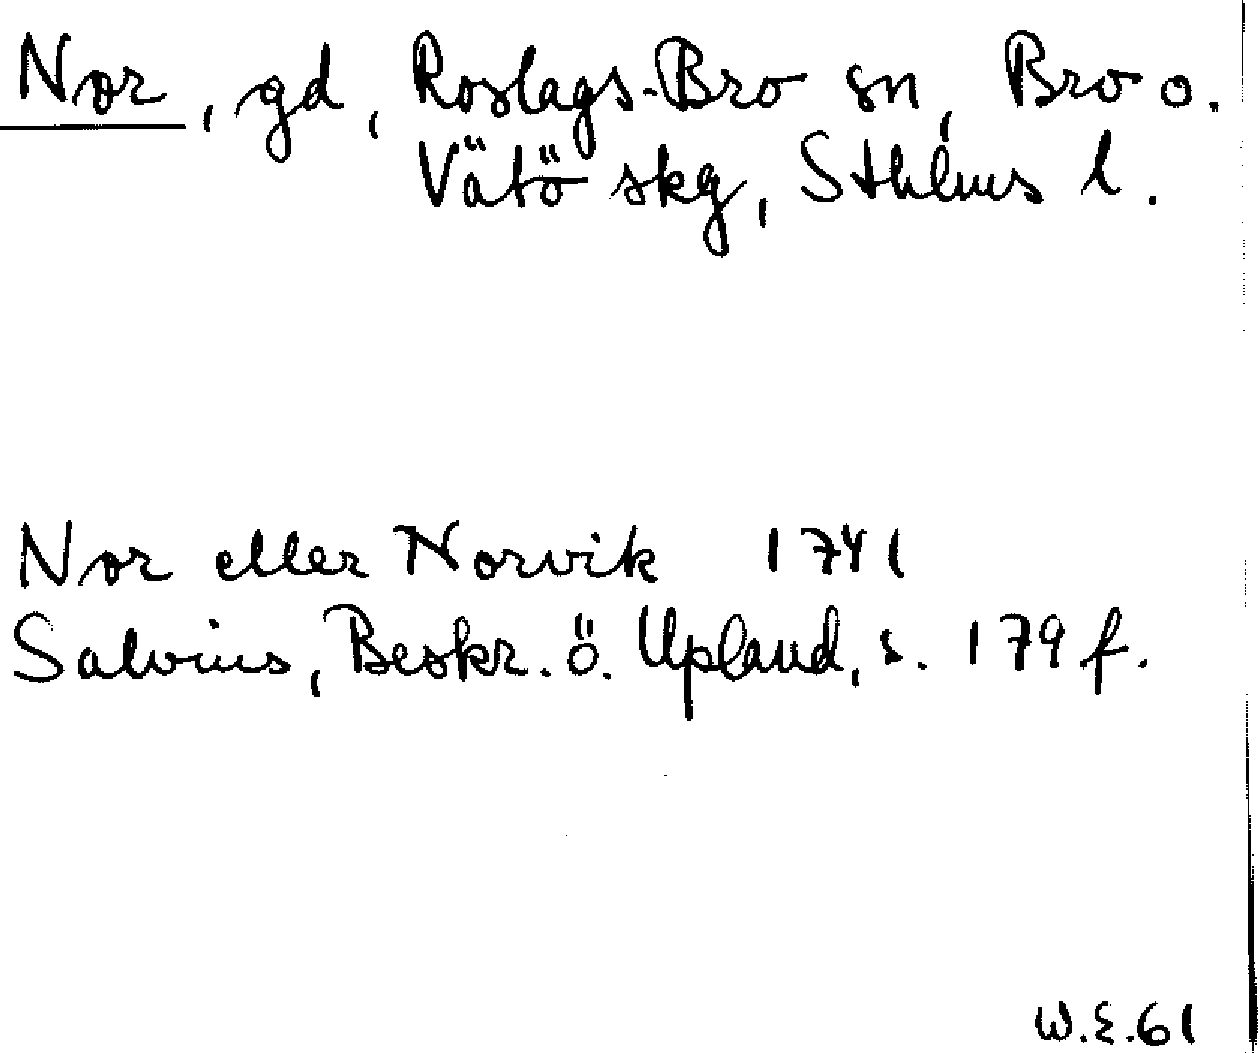 Nor, gd, Roslags-Bro sn, Bro o.
Vätö skg, Sthlms l.
Nor eller Norvik 1741
Salvius, Beskr. ö. Upland, s. 179 f.
W.E.61